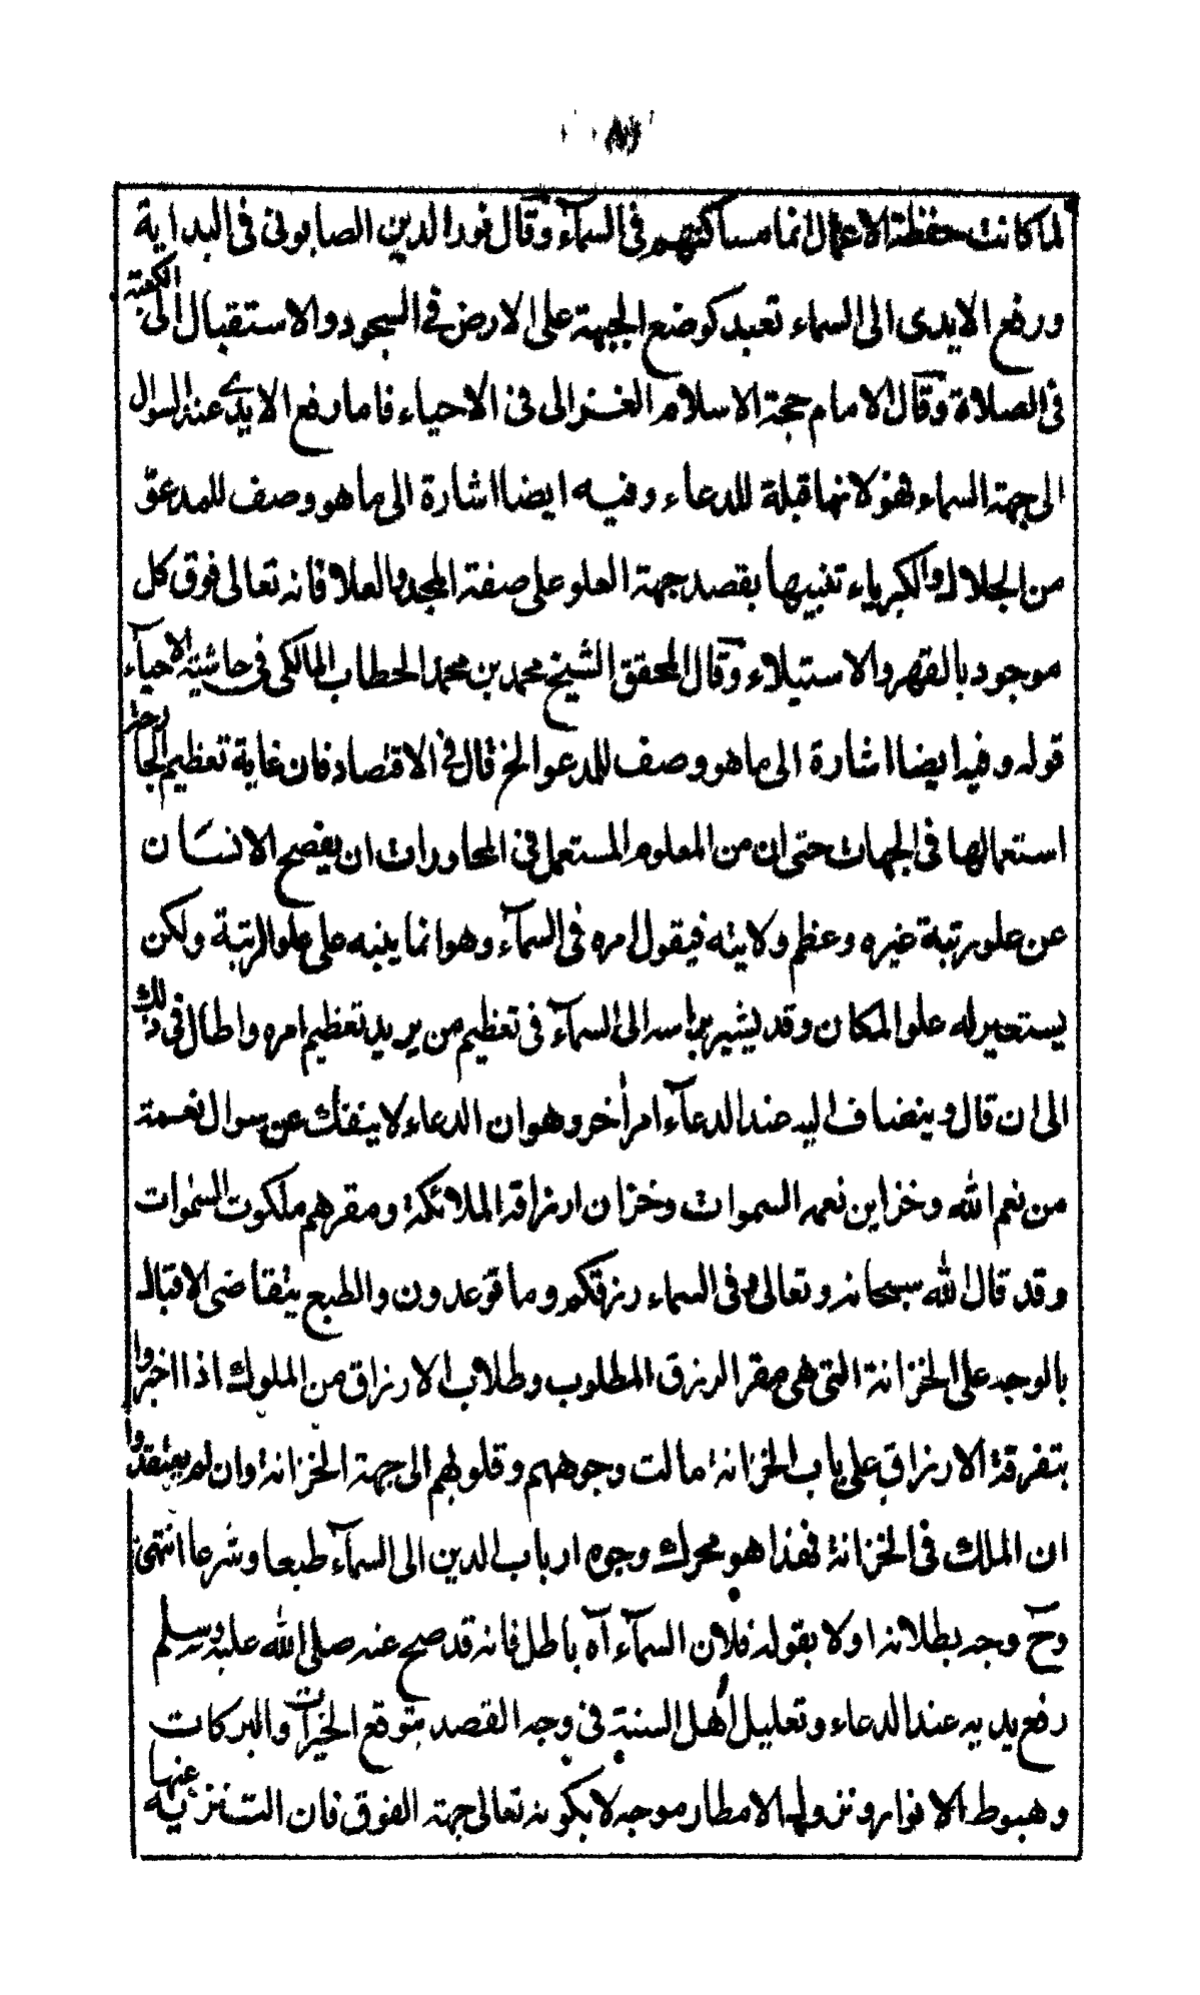 ٨١
لما كانت حفظة الاعمال انما مساكنهم فى السمآء وقال نور الدين الصابونى فى البداية
ورفع الايدى الى السماء تعبد كوضع الجبهة على الارض فى السجود والاستقبال الى الكعبة
فى الصلاة وقال الامام حجة الاسلام الغزالى فى الاحياء فاما رفع الايدى عند السوال
الى جهة السماء فهو لانها قبلة للدعاء وفيه ايضا اشارة الى ما هو وصف للمدعو
من الجلال والكبرياء تنبيها بقصد جهة العلو على صفة المجد والعلا فانه تعالى فوق كل
موجود بالقهر والاستيلاء وقال المحقق الشيخ محمد بن محمد الحطاب المالكى فى حاشية الاحياء
قوله وفيه ايضا اشارة الى ما هو وصف للمدعو الخ قال فى الاقتصاد فان غاية تعظيم الجارحة
استعمالها فى الجهات حتى ان من المعلوم المستعمل فى المحاورات ان يفصح الانسان
عن علو رتبة غيره وعظم ولايته فيقول امره فى السمآء وهو انما ينبه على علو الرتبة ولكن
يستعير له علو المكان وقد يشير براسه الى السمآء فى تعظيم من يريد تعظيم امره واطال فى ذلك
الى ان قال وينضاف اليه عند الدعآء امر أخر وهو ان الدعاء لا ينفك عن سوال نعمة
من نعم الله وخزاين نعمه السموات وخزان ارزاقه الملائكة ومقرهم ملكوت السموات
وقد قال الله سبحانه وتعالى وفى السماء رزقكم وما توعدون والطبع يتقاضى الاقبال
بالوجه على الخزانة التى هى مقر الرزق المطلوب وطلاب الارزاق من الملوك اذا اخبروا
بتفرقة الارزاق على باب الخزانة مالت وجوههم وقلوبهم الى جهة الخزانة وان لم يعتقدوا
ان الملك فى الخزانة فهذا هو محرك وجوه ارباب الدين الى السمآء طبعا وشرعا انتهى
وح وجه بطلانه اولا بقوله فلان السمآء آه باطل فانه قد صح عنه صلى الله عليه وسلم
رفع يديه عند الدعاء وتعليل اهل السنة فى وجه القصد بتوقع الخيرات والبركات
وهبوط الانوار ونزول الامطار موجه لا بكونه تعالى جهة الفوق فان التنزيه عنها